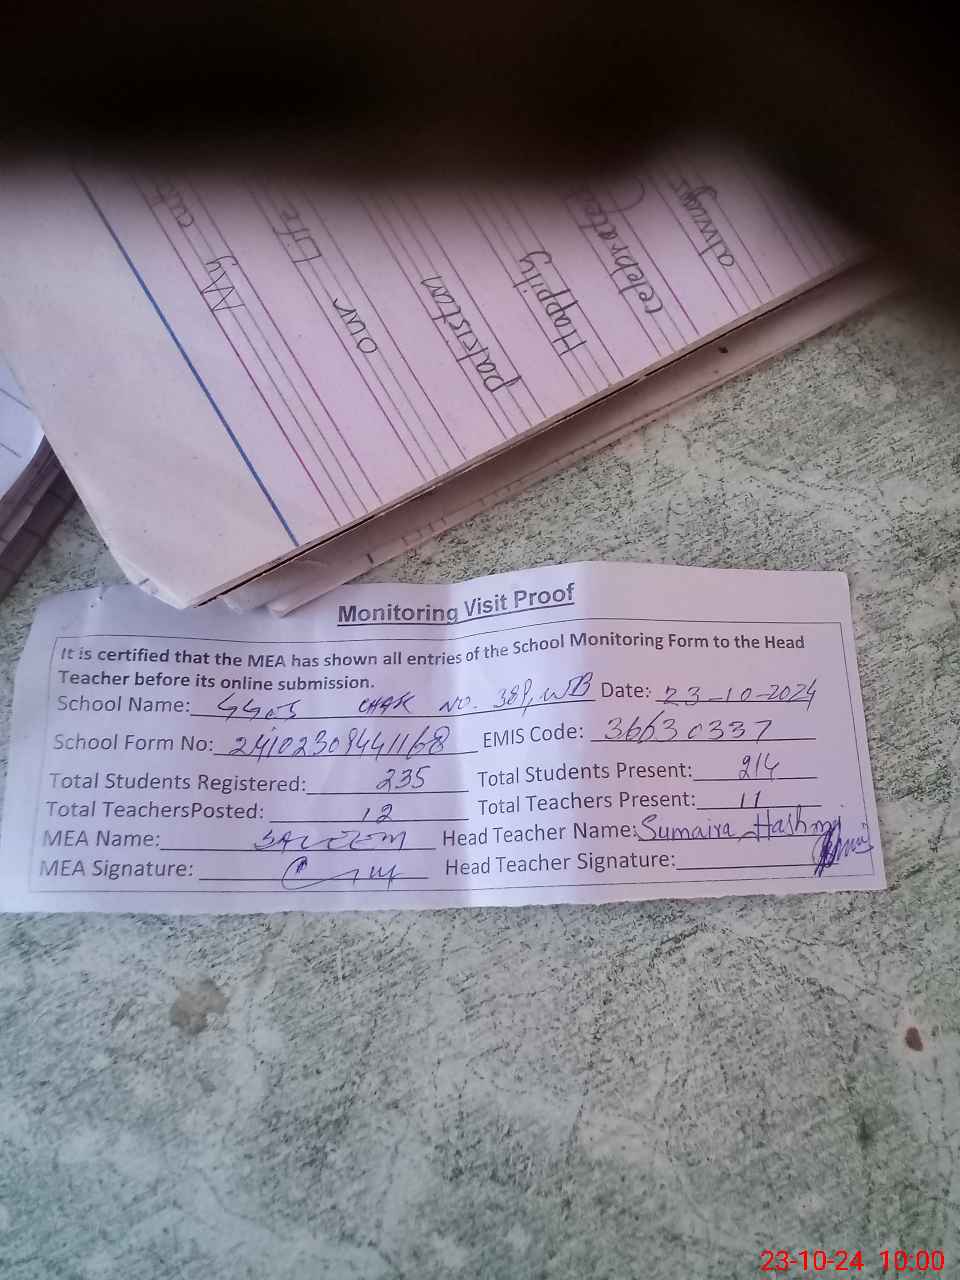 My cut
Life
our
pakistan
Happily
celebrate
always
Monitoring Visit Proof
It is certified that the MEA has shown all entries of the School Monitoring Form to the Head
Teacher before its online submission.
School Name: GGES CHAK NO. 389, WB Date: 23-10-2024
School Form No: EMIS Code: 36630337
Total Students Registered: 235 Total Students Present: 214
Total TeachersPosted: 12 Total Teachers Present: 11
MEA Name: SALEEM Head Teacher Name: Sumaira Hashmi
MEA Signature: Head Teacher Signature:
23-10-24 10:00